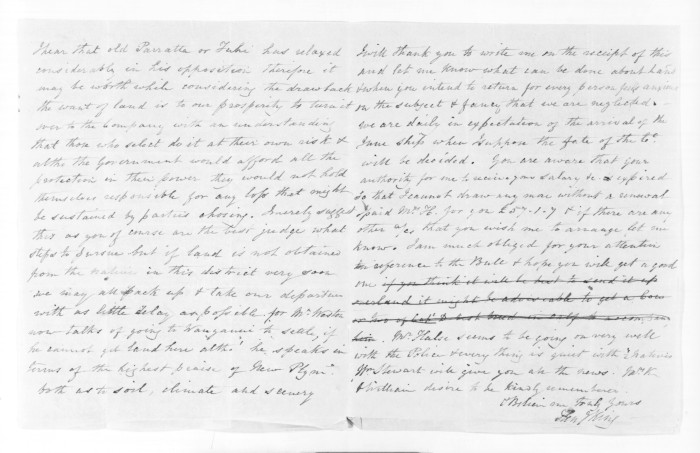 I hear that old Parratta or Tuhi has relaxed
considerably in his opposition therefore it
may be worth while considering the draw back
the want of land is to our prosperity to turn it
over to the Company with an understanding
that those who select do it at their own risk &
altho the Government would afford all the
protection in their power they would not hold
themselves responsible for any loss that might
be sustained by parties chosing. I merely suggest
this as you of course are the best judge what
steps to pursue but if land is not obtained
from the natives in this district very soon
we may all pack up & take our departure
with as little delay as possible for Mr
now talks of going to Wanganui to settle, if
he cannot get land here altho' he speaks in
terms of the highest praise of New Plymth
both as to soil, climate and scenery
I will thank you to write me on the receipt of this
and let me know what can be done about land
& when you intend to return for every person
on the subject & fancy that we are neglected. -
we are daily in expectation of the arrival of the
June ship when I suppose the fate of the Co.
will be decided. You are aware that your
authority for me receiving your salary &c expired
so that I cannot draw any more without a renewal
I paid Mr H. for you £57-1-7 & if there are any
other a/cs that you wish me to arrange let me
know. I am much obliged for your attention
in reference to the Bull & hope you will get a good
one if you think it will be best to send it up
overland it might be adviseable to get a cow
or two of
Mr Halse seems to be going on very well
with the Police & every thing is quiet with the Natives
Mr Stewart will give you all the news. Mrs K
& William desire to be kindly remembered.
Believe me Truly Yours